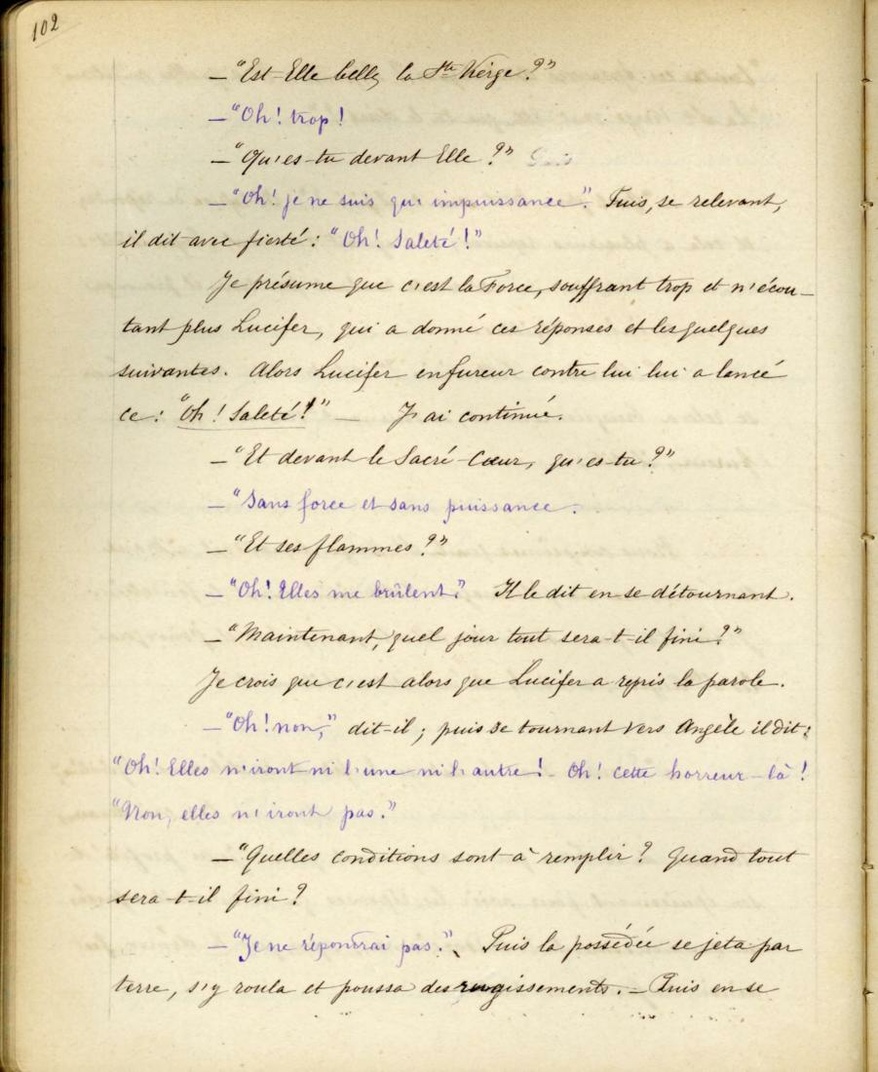 102
—"Est-Elle belle, la Ste Vierge?"
—"Oh! trop!
—"Qu'es-tu devant Elle?"
—"Oh! je ne suis qu'impuissance". Puis, se relevant,
il dit avec fierté: "Oh! Saleté!"
Je présume que c'est la Force, souffrant trop et n'écou-
tant plus Lucifer, qui a donné ces réponses et les quelques
suivantes. Alors Lucifer en fureur contre lui lui a lancé
ce: "Oh! Saleté!" — J'ai continué.
—"Et devant le Sacré-Cœur, qu'es-tu?"
—"Sans force et sans puissance.
—"Et ses flammes?"
—"Oh! Elles me brûlent." Il le dit en se détournant.
—"Maintenant, quel jour tout sera-t-il fini?"
Je crois que c'est alors que Lucifer a repris la parole.
—"Oh! non," dit-il; puis se tournant vers Angèle il dit:
"Oh! Elles n'iront ni l'une ni l'autre! - Oh! cette horreur-là!
"Non, elles n'iront pas."
—"Quelles conditions sont à remplir? Quand tout
sera-t-il fini?
—"Je ne répondrai pas." Puis la possédée se jeta par
terre, s'y roula et poussa des rugissements. — Puis en se